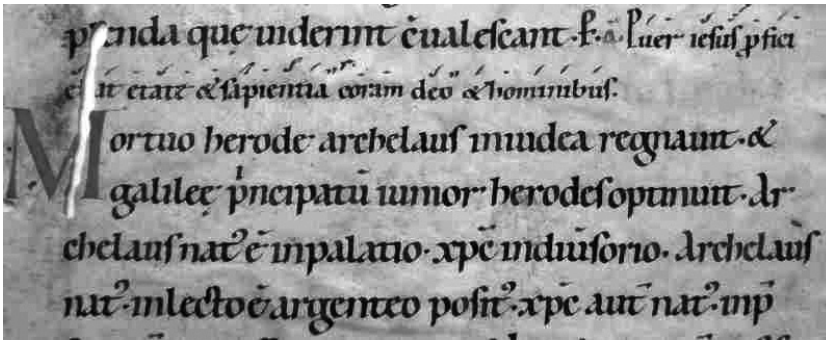 prenda quę uiderint c̄ualescant · R̃. a. Puer iesus ꝓfici
ebat etate & sapientia coram deo & hominibus:
Mortuo herode archelaus iniudea regnauit · &
galileę pͥncipatū iunior herodes optinuit · Ar
chelaus natꝰ ē inpalatio · xp̄c indiuisorio · Archelaus
natꝰ · inlecto ē argenteo positꝰ · xp̄c aut̄ natꝰ · inp̄